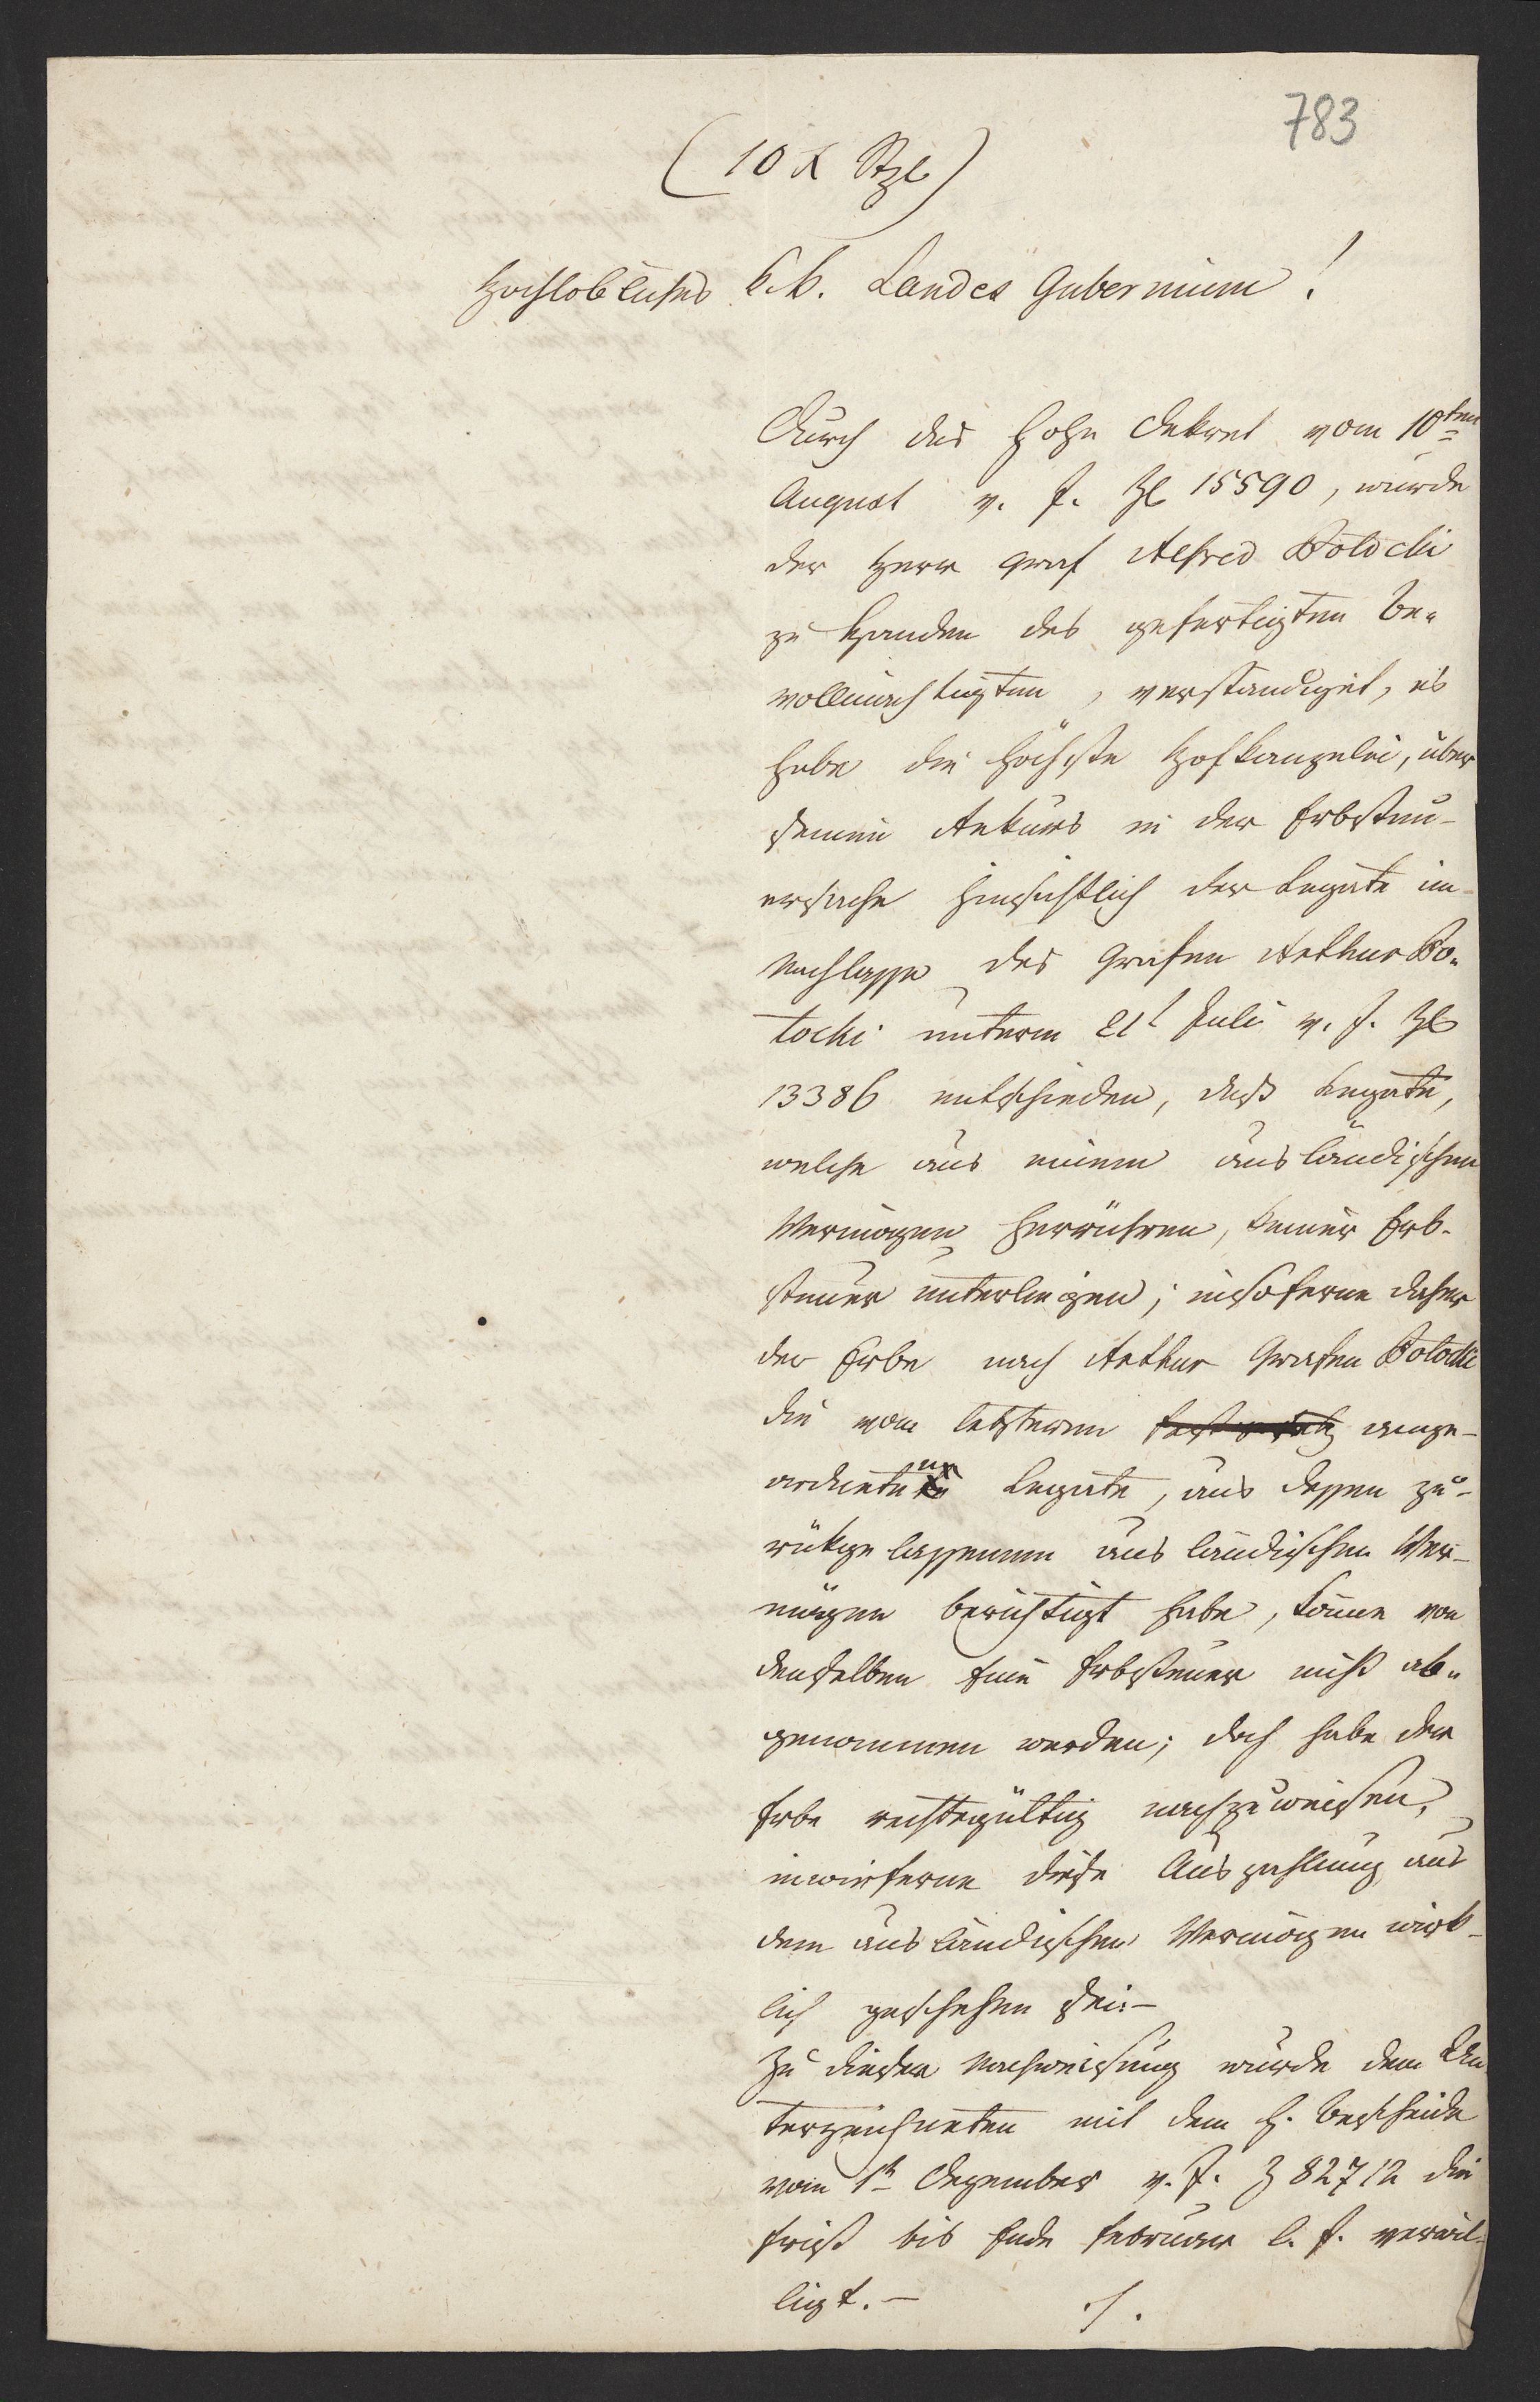 783
(10 x Stzl)
Hochlobliches k. k. Landes Gubernium!
Durch das hohe Dekret vom 10ten
August v. J. Zl 15590, wurde
der Herr Graf Alfred Potocki
zu Handen des gefertigten Be-
vollmachtigten, verstandiget, es
habe die höchste Hofkanzelei, über
seinen Rekurs in der Erbsteu-
ersache hinsichtlich der Legate im
Nachlasse des Grafen Arthur Po-
tocki unterm 21t Juli v. J. Zl
13386 entschieden, daß Legate,
welche aus einem ausländischen
Vermögen herrühren, keiner Erb-
steuer unterliegen; insoferne daher
der Erbe nach Arthur Grafen Potocki
die vom letzteren ange-
ordneten Legate, aus dessen zu-
rükgelassenen ausländischen Ver-
mögen berichtigt habe, könne von
denselben eine Erbsteuer nicht ab-
genommen werden; doch habe der
Erbe rechtsgültig nachzuweisen,
inwieferne diese Auszahlung aus
dem ausländischen Vermögen wirk-
lich geschehen sei.-
Zu dieser Nachweisung wurde dem Un-
terzeichneten mit dem h. Bescheide
vom 1t Dezember v. J. Z 82712 die
Frist bis Ende Februar l. J. verwil-
ligt.- ./.